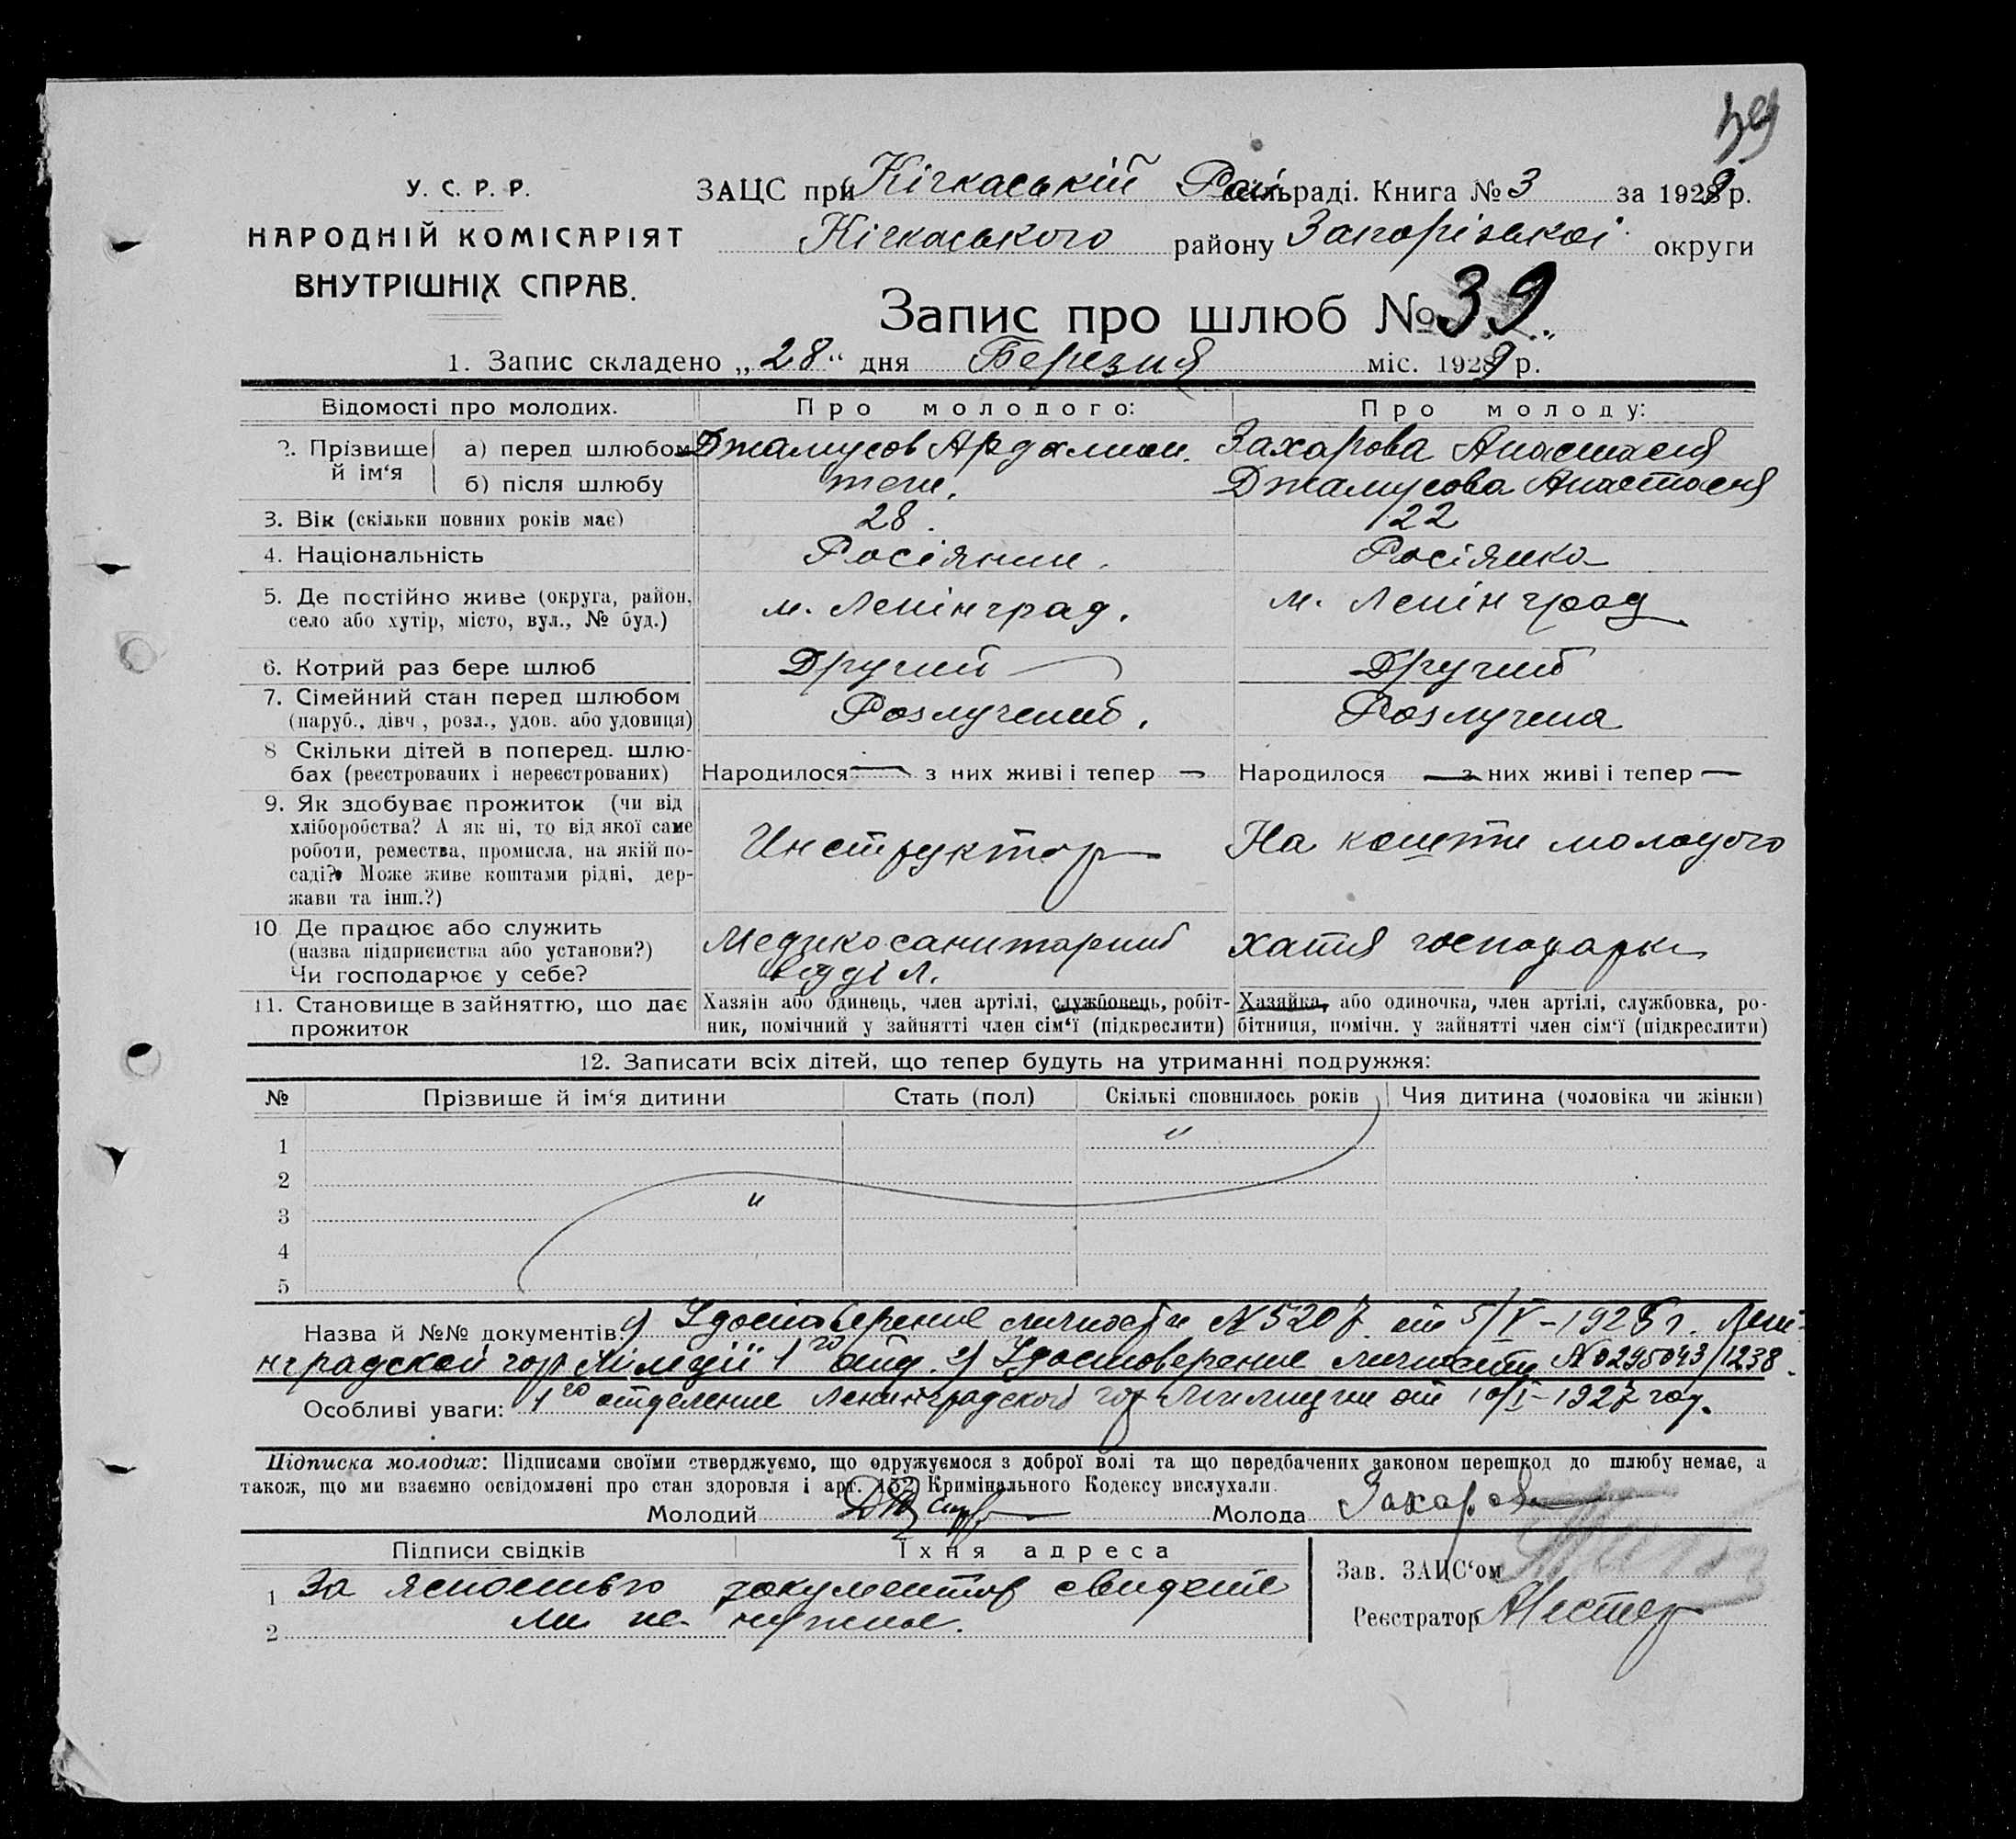 39
У. С. Р. Р.
НАРОДНІЙ КОМІСАРІЯТ
ВНУТРІШНІХ СПРАВ.
ЗАЦС при Кічкаській Рай раді. Книга № 3 за 1929 р.
Кічкаського району Запорізької округи
Запис про шлюб № 39.
1. Запис складено „28“ дня Березня міс. 1929 р.
Відомості про молодих. Про молодого: Про молоду:
2. Прізвище й ім‘я а) перед шлюбом Джамусов Ардалион. Захарова Анастасия
б) після шлюбу теж. Джамусова Анастасия
3. Вік (скільки повних років має) 28. 22
4. Національність Росіянин. Росіянка
5. Де постійно живе (округа, район, м. Ленінград. м. Ленінград
село або хутір, місто, вул., № буд.)
6. Котрий раз бере шлюб Другий Другий
7. Сімейний стан перед шлюбом Розлучений. Розлучена
(паруб., дівч., розл., удов. або удовиця)
8 Скільки дітей в поперед. шлю-
бах (реєстрованих і нереєстрованих) Народилося — з них живі і тепер — Народилося — з них живі і тепер —
9. Як здобуває прожиток (чи від
хліборобства? А як ні, то від якої саме Инструктор На кошти молодого
роботи, ремества, промисла, на якій по-
саді? Може живе коштами рідні, дер-
жави та інш.?)
10 Де працює або служить Медикосанитарний хатня господарка
(назва підприємства або установи?) відділ.
Чи господарює у себе?
11. Становище в зайняттю, що дає Хазяїн або одинець, член артілі, службовець, робіт- Хазяйка, або одиночка, член артілі, службовка, ро-
прожиток ник, помічний у зайнятті член сім‘ї (підкреслити) бітниця, помічн. у зайнятті член сім‘ї (підкреслити)
12. Записати всіх дітей, що тепер будуть на утриманні подружжя:
№ Прізвише й ім‘я дитини Стать (пол) Скількі сповнилось років Чия дитина (чоловіка чи жінки)
1 "
2
3 "
4
5
Назва й №№ документів: 1) Удостоверение личности N 5207 от 5/V-1928 г. Лени-
нградской гор Міліції 1го отд. 2) Удостоверение личности № 0295043/1238.
Особливі уваги: 1го отделение Ленинградской гор Милиции от 10/I-1927 год.
Підписка молодих: Підписами своїми стверджуємо, що одружуємося з доброї волі та що передбачених законом перешкод до шлюбу немає, а
також, що ми взаємно освідомлені про стан здоровля і арт. 152 Кримінального Кодексу вислухали.
Молодий Молода Захарова
Підписи свідків Їхня адреса
Зав. ЗАЦС‘ом
1 За ясностью документов свидете
Реєстратор
2 ли не нужные.